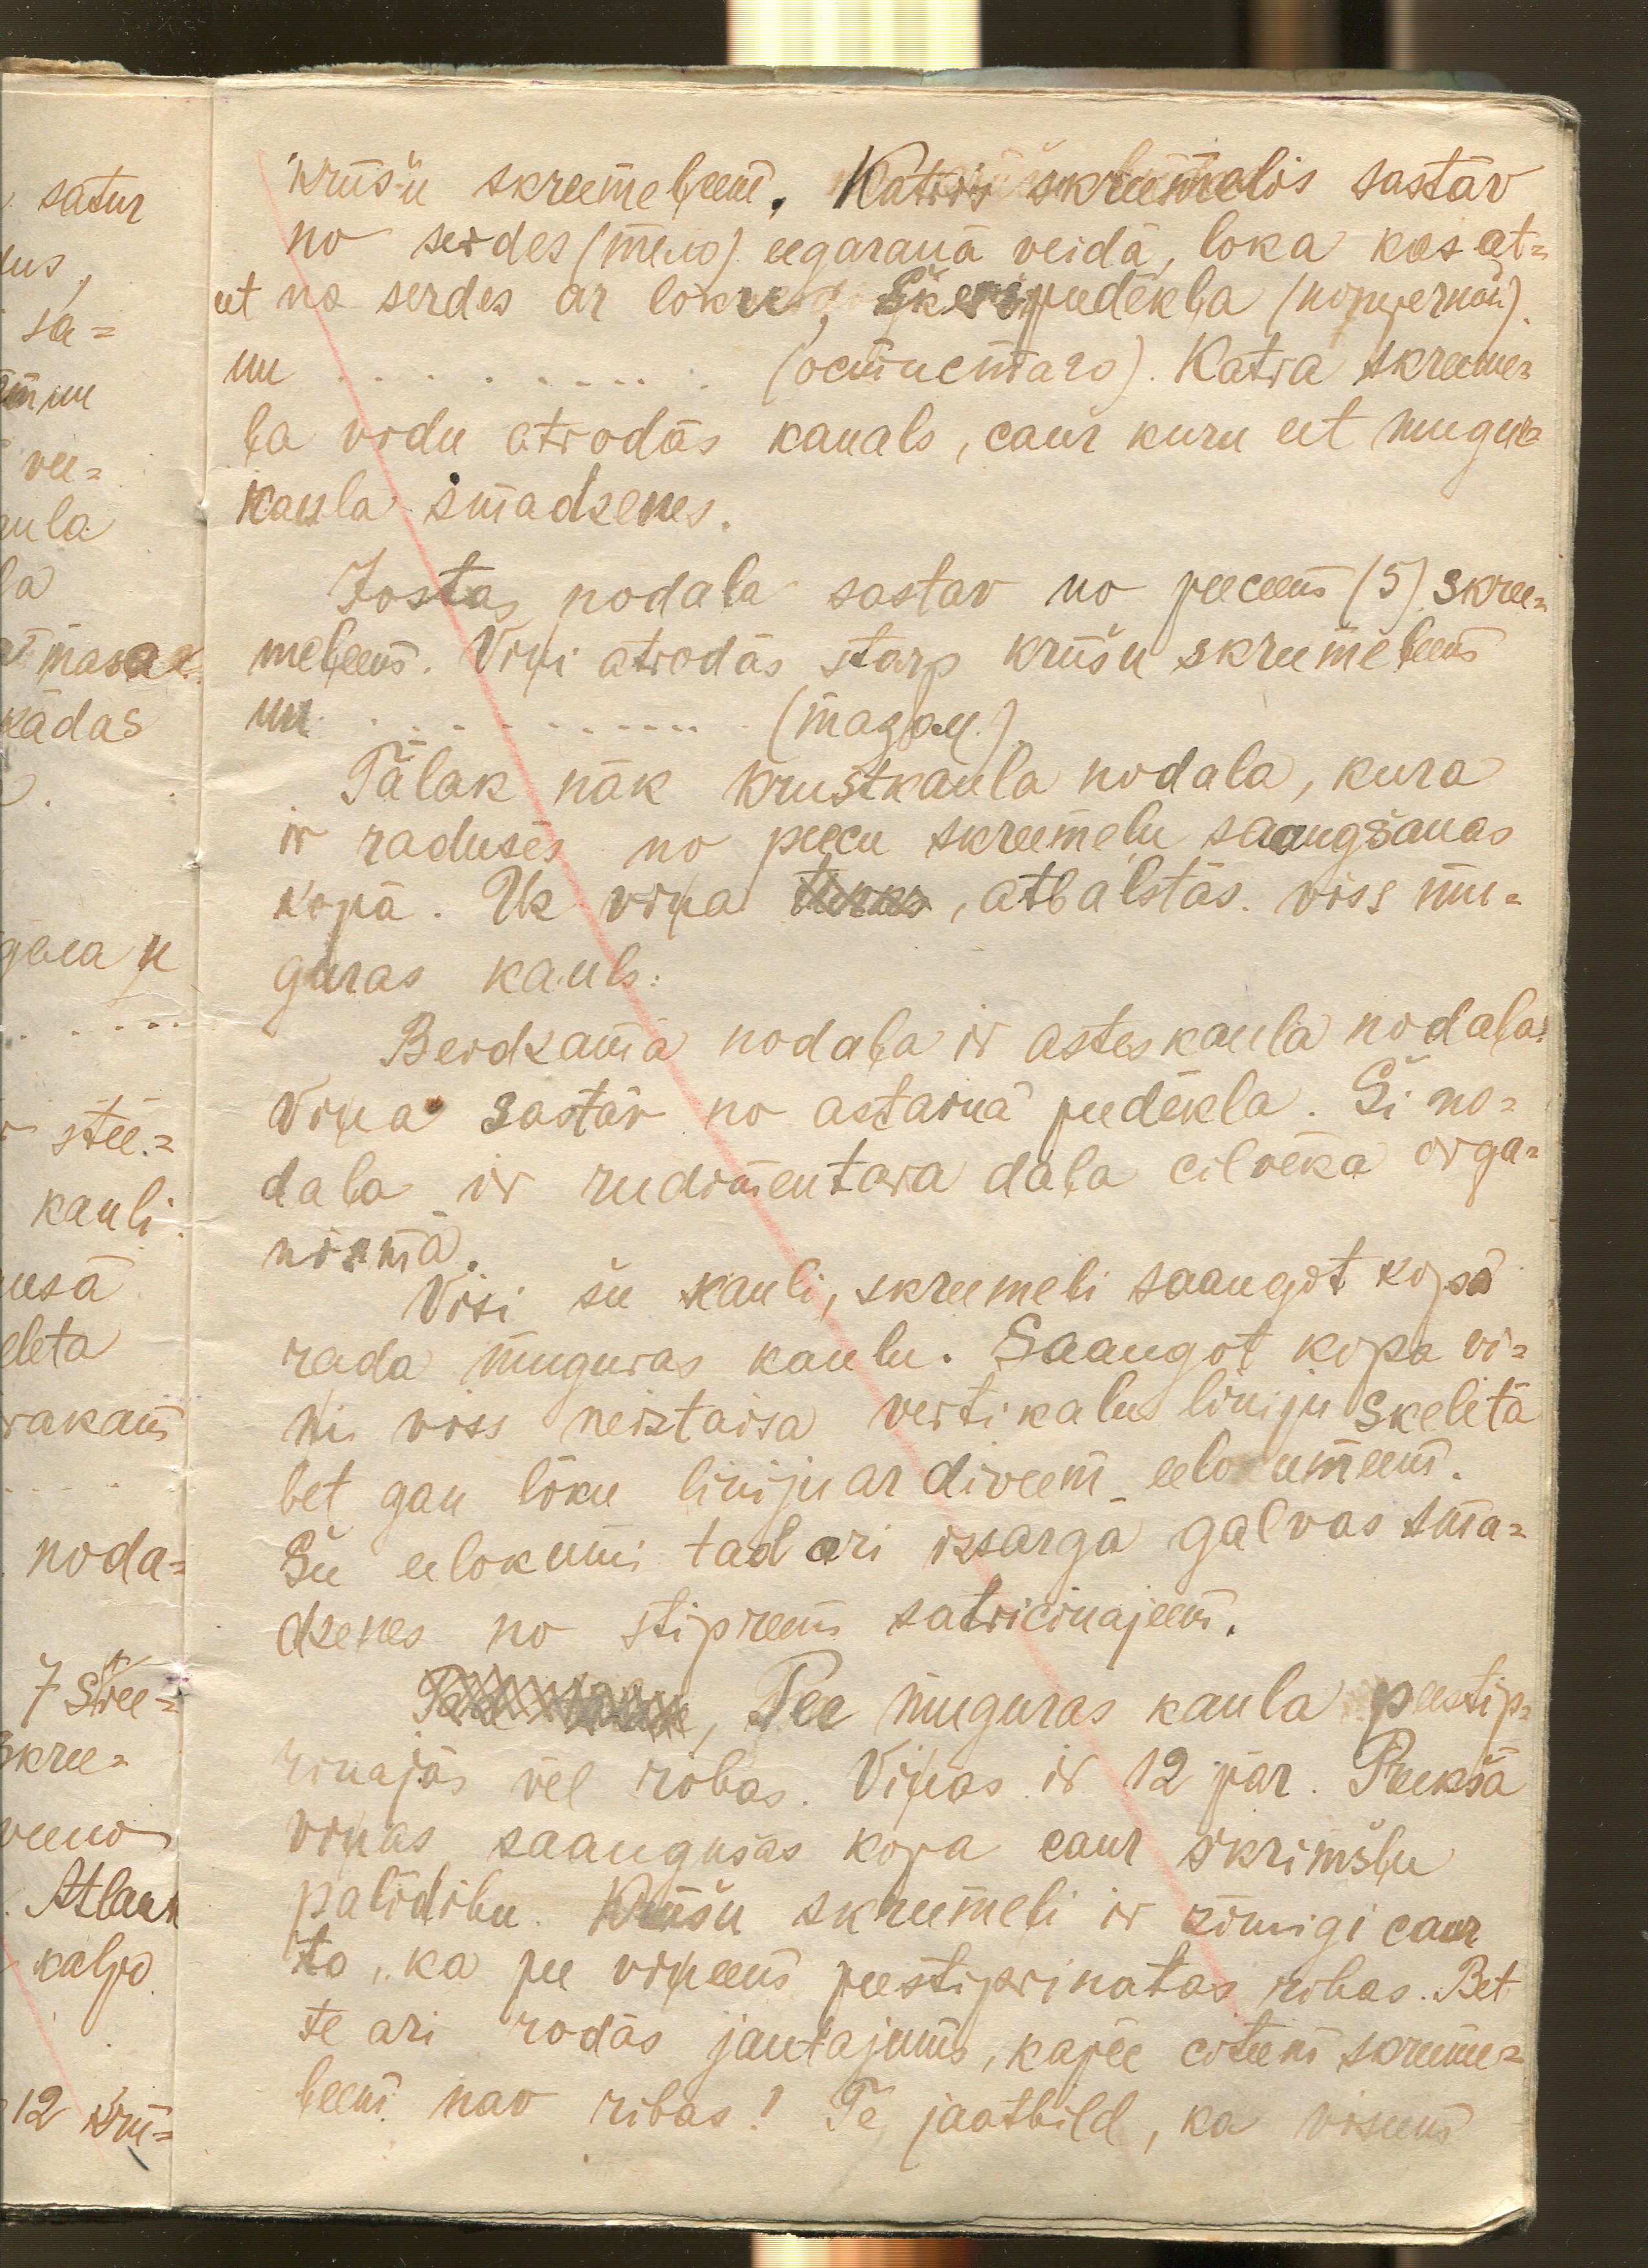 satur
sa=
vee=
aula
kādas
stee=
kauli
usā
eleta
noda=
7 Skree=
skree=
Atlant
kalpo
12 krū=
krūšu skreemeļeem. Katris skreemelis sastāv
no serdes (тело) eegaranā veidā, loka kas at=
eet no serdes ar lokeem, Šķērspeedēkļa (попереч.)
un . . . . . . . . . . . (остистаго). Katra skreeme=
ļa vidu atrodās kanals, caur kuru eet mugur=
kaula smadzenes.
Jostas nodaļa sastāv no peeceem (5) skree=
meļeem. Viņi atrodās starp krūšu skreemeļeem
un . . . . . . . . . . . (тазом.)
Tālak nāk krustkaula nodaļa, kura
ir radusēs no peecu skreemeļu saaugšanas
kopā. Uz viņa , atbalstās viss mu=
guras kauls.
Beidzamā nodaļa ir asteskaula nodaļa.
Viņa sastāv no astainā peedēkļa. Ši no=
daļa ir rudimentara daļa cilvēka orga=
nismā.
Visi šee kauli, skreemeļi saaugot kopā
rada muguras kaulu. Saaugot kopa vi=
ņi viss neiztaisa vertikalu liniju skeletā
bet gan līku liniju ar diveem eelokumeem.
Šee eelokumi tad ari izsargā galvas sma=
dzenes no stipreem satricinajeem.
, Pee muguras kaula peestip=
rinajās vēl ribas. Viņas ir 12 pār. Preekšā
viņas saaugušas kopa caur skrimšļu
palīdzibu. Krūšu skreemeļi ir zimigi caur
to, ka pee viņeem peestiprinatas ribas. Bet
te ari rodās jautajums, kapēc citeem skreeme=
ļeem nav ribas! Te jaatbild, ka viseem